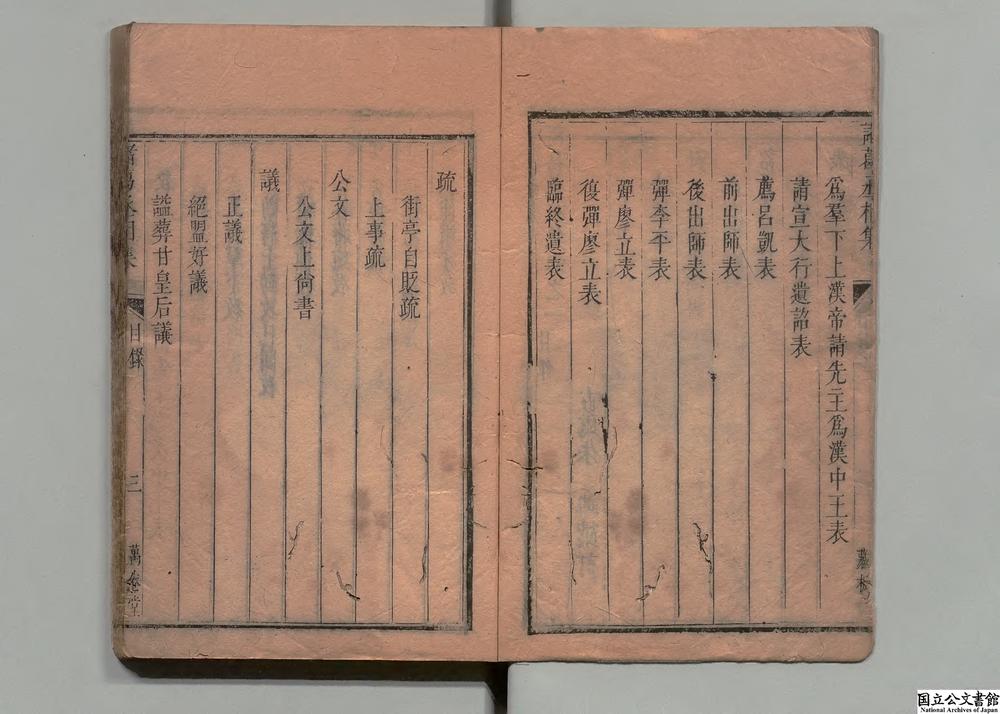 諸葛丞相集
爲羣下上漢帝請先主爲漢中王表
請宣大行遺詔表
薦呂凱表
前出師表
後出師表
彈李平表
彈廖立表
復彈廖立表
臨終遺表
疏
街亭自貶疏
上事疏
公文
公文上尙書
議
正議
絕盟好議
諡葬甘皇后議
諸葛丞相集
目錄
三
萬卷堂
国立公文書館
National Archives of Japan